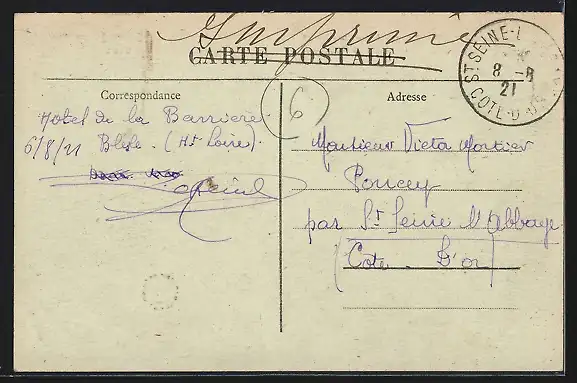 Imprimé
CARTE POSTALE
ST SEINE-L
8 -8
21
COTE-D'OR
Correspondance
Adresse
6
Hotel de la Barrière
6/8/21 Blesle (Hte Loire).
Monsieur Victor Mortier
Poncey
par St Seine l'Abbaye
(Cote - D'or)